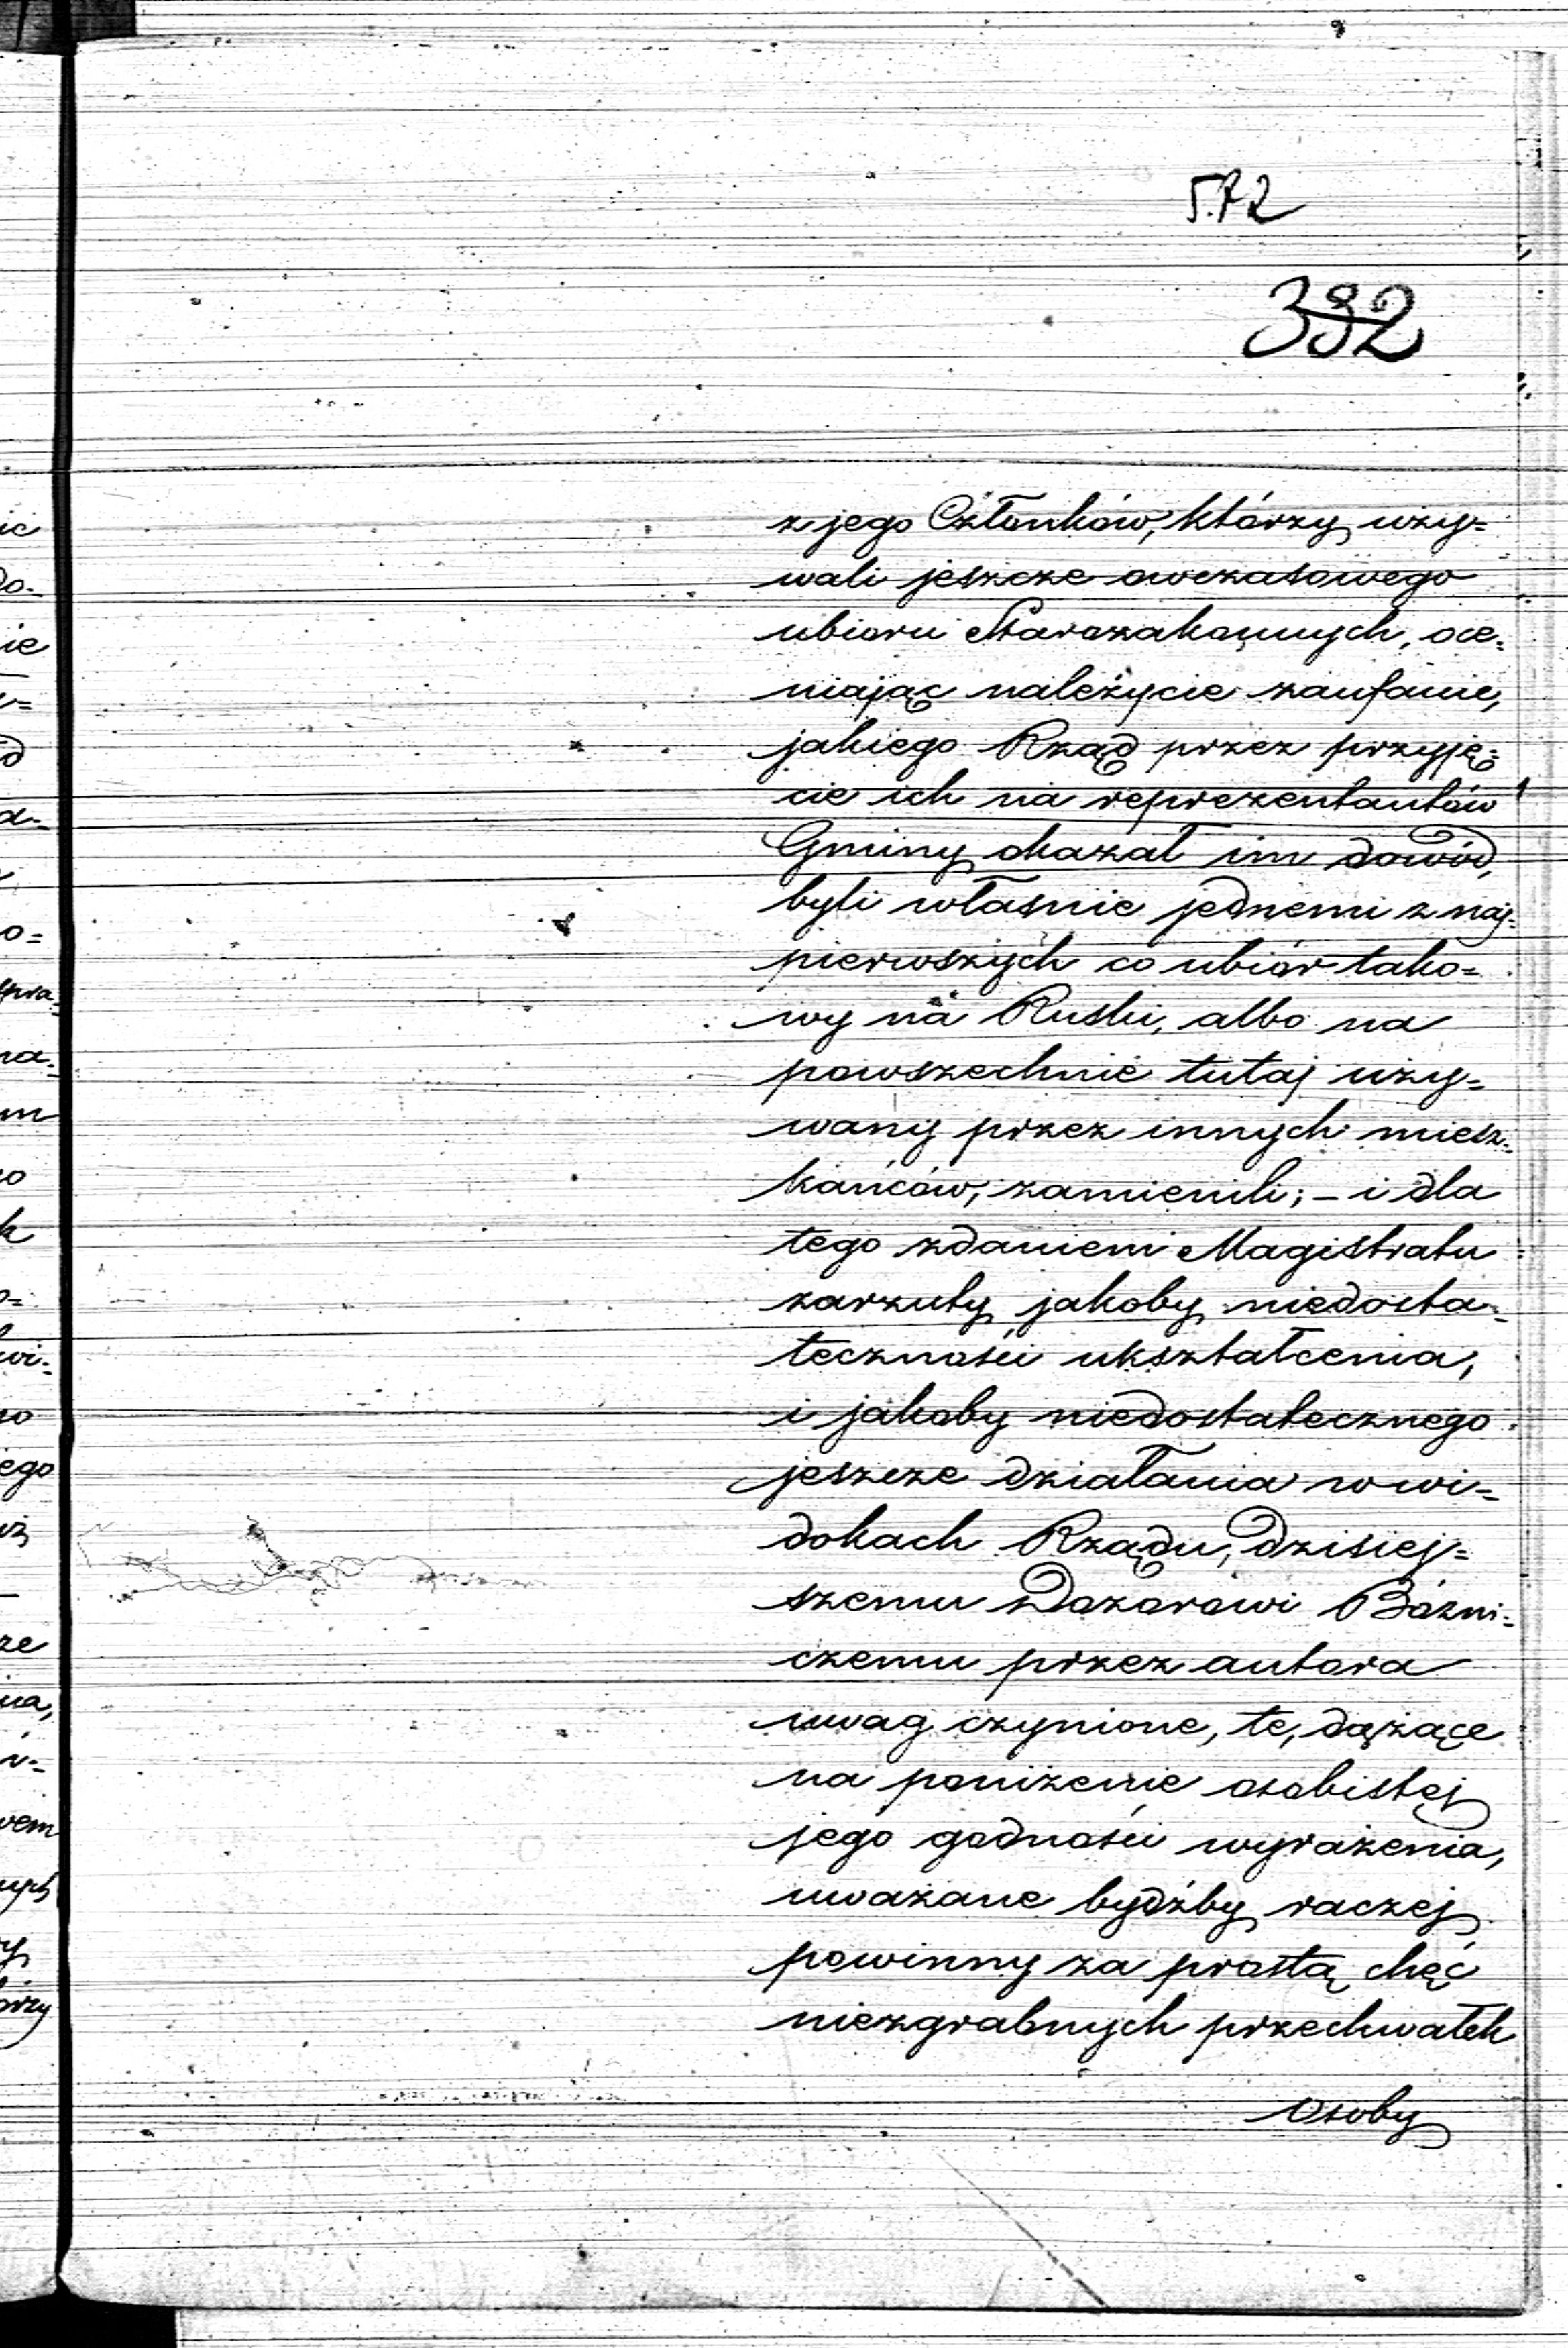 572
392
z jego Członków, którzy uży=
wali jeszcze owczasowego
ubioru Starozakonnych, oce=
niając należycie zaufanie,
jakiego Rząd przez przyję=
cie ich na reprezentantów
Gminy okazał im dowód,
byli właśnie jednemi z naj=
pierwszych co ubiór tako=
wy na Ruski, albo na
powszechnie tutaj uży=
wany przez innych miesz=
kańców, zamienili; – i dla
tego zdaniem Magistratu
zarzuty jakoby niedosta=
teczności ukształcenia,
i jakoby niedostatecznego
jeszcze działania w wi=
dokach Rządu, dzisiej=
szemu Dozorowi Bóźni=
czemu przez autora
uwag czynione, te, dążące
na poniżenie osobistej
jego godności wyrażenia,
uważane bydźby raczej
powinny za prostą chęć
niezgrabnych przechwałek
osoby